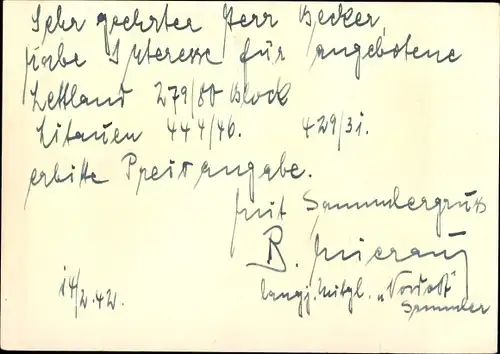 Sehr geehrter Herr Becker,
habe Interesse für angebotene
Lettland 279/80 Block
Litauen 444/46. 429/31.
erbitte Preisangabe.
Mit Sammlergruß
B.
14/2.42. langj. Mitgl. „Nordost"
Sammler